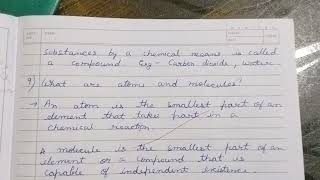 substances by a chemical means is called
a compound Eg - Carbon dioxide, water
9) What are atoms and molecules?
→ An atom is the smallest part of an
element that take part in a
chemical reaction.
A molecule is the smallest part of an
element or a compound that is
capable of independent existence.